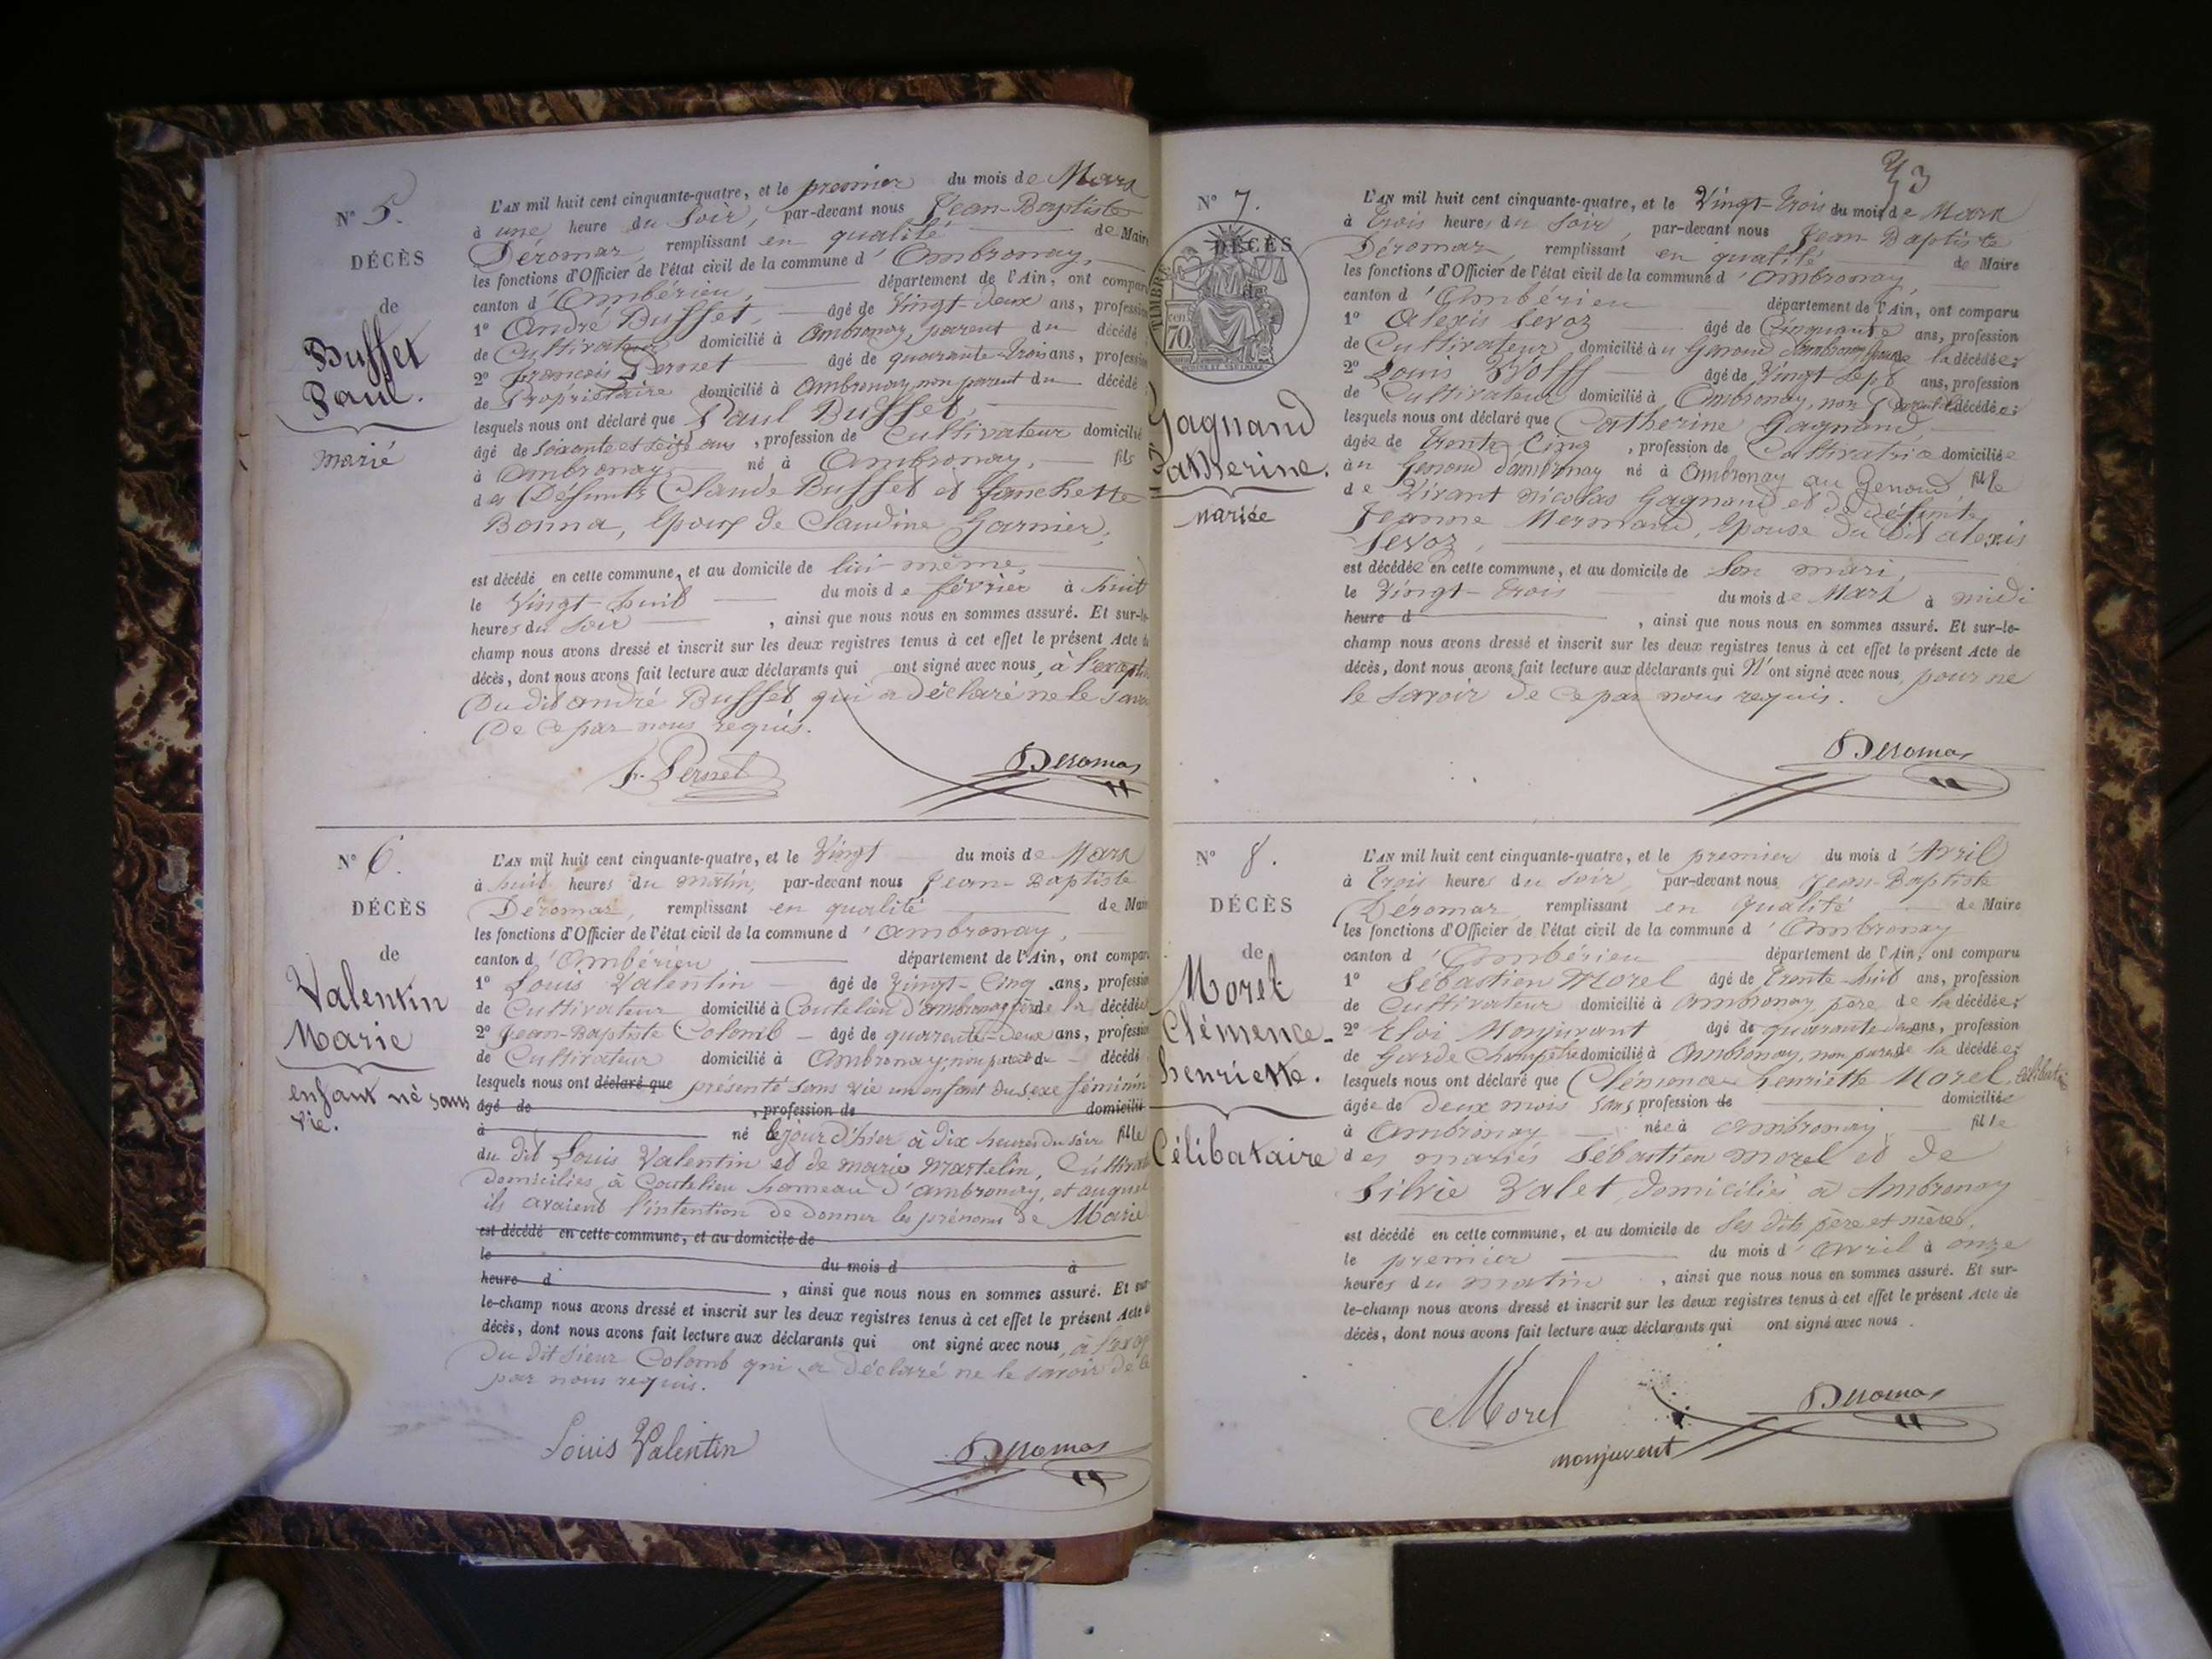 N° 5.
DÉCÈS
de
Buffet
Paul.
marié
L'AN mil huit cent cinquante-quatre, et le premier du mois de Mars
à une heure du Soir, par-devant nous Jean-Baptiste
Déromas, remplissant en qualité de Maire
les fonctions d'Officier de l'état civil de la commune d'Ambronay,
canton d'Ambérieu, département de l'Ain, ont compar
1° André Buffet, âgé de Vingt-deux ans, profession
de Cultivateur domicilié à Ambronay, parent du décédé
2° François Pernet âgé de quarante-trois ans, profession
de Propriétaire domicilié à Ambronay, non parent du décédé
lesquels nous ont déclaré que Paul Buffet,
âgé de soixante et seize ans, profession de Cultivateur domicilié
à Ambronay, né à Ambronay, fils
des Défunts Claude Buffet et fanchette
Bonna, Epoux de Claudine Garnier,
est décédé en cette commune, et au domicile de lui-même,
le Vingt-huit du mois de février à huit
heures du Soir, ainsi que nous nous en sommes assuré. Et sur-le-
champ nous avons dressé et inscrit sur les deux registres tenus à cet effet le présent Acte de
décès, dont nous avons fait lecture aux déclarants qui ont signé avec nous, à l'except
Du dit andré Buffet qui a déclaré ne le savoi
De Ce par nous requis.
F. Pernet
Deromas
N° 6.
DÉCÈS
de
Valentin
Marie
enfant né sans
vie.
L'AN mil huit cent cinquante-quatre, et le Vingt du mois de Mars
à huit heures du matin, par-devant nous Jean-Baptiste
Déromas, remplissant en qualité de Mair
les fonctions d'Officier de l'état civil de la commune d'Ambronay,
canton d'Ambérieu département de l'Ain, ont compar
1° Louis Valentin âgé de Vingt-Cinq ans, profession
de Cultivateur domicilié à Coutelieu d'ambronay père de la décédée
2° Jean-Baptiste Colomb âgé de quarante-deux ans, profession
de Cultivateur domicilié à Ambronay, non parent de décédé
lesquels nous ont déclaré que présenté sans vie un enfant du sexe féminin
âgé de , profession de domicilié
à né le jour d'hier à dix heures du soir fille
du dit Louis Valentin et de marie martelin, Cultivat
domiciliés à Coutelieu hameau d'ambronay, et auquel
ils avaient l'intention de donner les prénoms de Marie
est décédé en cette commune, et au domicile de
le du mois d à
heure d , ainsi que nous nous en sommes assuré. Et sur
le-champ nous avons dressé et inscrit sur les deux registres tenus à cet effet le présent Acte de
décès, dont nous avons fait lecture aux déclarants qui ont signé avec nous, à l'excep
Du dit sieur Colomb qui a déclaré ne le savoir de Ce
par nous requis.
Louis Valentin
Deromas
73
N° 7.
DÉCÈS
de
TIMBRE
cen
70
Gagnand
Catherine.
Mariée
L'AN mil huit cent cinquante-quatre, et le Vingt-trois du mois de Mars
à trois heures du soir, par-devant nous Jean-Baptiste
Déromas, remplissant en qualité de Maire
les fonctions d'Officier de l'état civil de la commune d'Ambronay,
canton d'Ambérieu département de l'Ain, ont comparu
1° Alexis Sevoz âgé de Cinquante ans, profession
de Cultivateur domicilié à u Genoud d'ambronay la décédée;
2° Louis Wolff âgé de Vingt-sept ans, profession
de Cultivateur domicilié à Ambronay, non parent de décédée;
lesquels nous ont déclaré que Catherine Gagnand,
âgée de trente-Cinq, profession de Cultivatrice domiciliée
à u Genoud d'ambronay né à Ambronay au Genoud fille
de Vivant nicolas Gagnand et de défunte
Jeanne Mermand, épouse du dit alexis
Sevoz,
est décédée en cette commune, et au domicile de Son mari,
le Vingt-trois du mois de Mars à midi
heure d , ainsi que nous nous en sommes assuré. Et sur-le-
champ nous avons dressé et inscrit sur les deux registres tenus à cet effet le présent Acte de
décès, dont nous avons fait lecture aux déclarants qui N'ont signé avec nous, pour ne
le savoir de Ce par nous requis.
Deromas
N° 8.
DÉCÈS
de
Morel
Clémence-
henriette.
Célibataire
L'AN mil huit cent cinquante-quatre, et le premier du mois d'Avril
à trois heures du soir, par-devant nous Jean-Baptiste
Déromas, remplissant en qualité de Maire
les fonctions d'Officier de l'état civil de la commune d'Ambronay
canton d'Ambérieu département de l'Ain, ont comparu
1° Sébastien Morel âgé de trente-huit ans, profession
de Cultivateur domicilié à Ambronay père de la décédée;
2° Eloi Monjuvant âgé de quarante deux ans, profession
de Garde Champêtre domicilié à Ambronay, non parent de la décédée;
lesquels nous ont déclaré que Clémence henriette Morel, Célibataire
âgée de deux mois sans profession de domiciliée
à Ambronay née à Ambronay fille
des mariés Sébastien morel et de
Silvie Valet, domiciliés à Ambronay
est décédé en cette commune, et au domicile de Ses dits père et mère.
le premier du mois d'avril à onze
heures du matin, ainsi que nous nous en sommes assuré. Et sur-
le-champ nous avons dressé et inscrit sur les deux registres tenus à cet effet le présent Acte de
décès, dont nous avons fait lecture aux déclarants qui ont signé avec nous.
Morel
Deromas
monjuvent